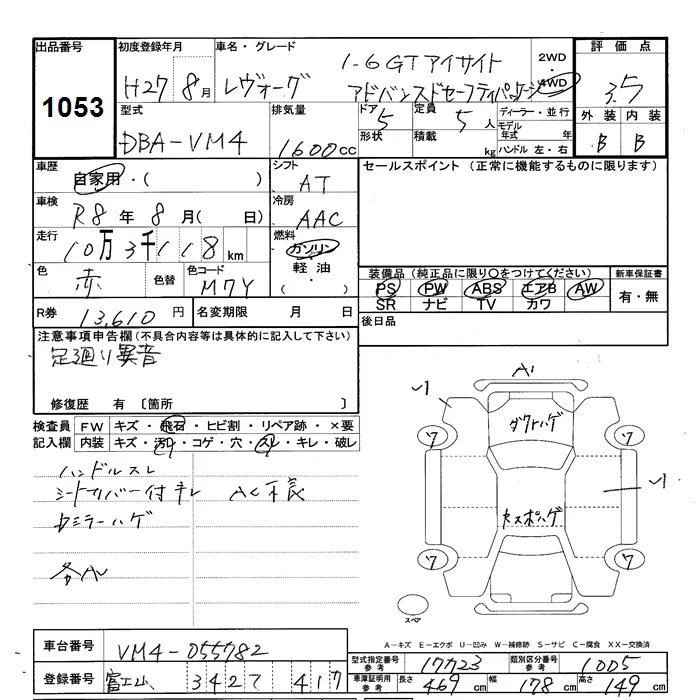 出品番号
1053
初度登録年月
H27年8月
車名・グレード
レヴォーグ
1-6GTアイサイト
アドバンスドセーフティパッケージ
2WD
・
4WD
評価点
3.5
外装 内装
B B
型式
DBA-VM4
排気量
1600cc
ドア 5
形状
定員 5人
積載 kg
ディーラー・並行
モデル年式 年
ハンドル 左・右
車歴
自家用・( )
車検
R8年8月( 日)
走行
10万3千118km
色
赤
色替
色コード
M7Y
シフト
AT
冷房
AAC
燃料
ガソリン
・
軽油
・( )
セールスポイント (正常に機能するものに限ります)
装備品(純正品に限り○をつけてください)
PS PW ABS エアB AW
SR ナビ TV カワ
新車保証書
有・無
R券 13,610円
名変期限 月 日
後日品
注意事項申告欄(不具合内容等は具体的に記入して下さい)
足廻り異音
修復歴 有 〔箇所 〕
検査員 FW キズ・飛石・ヒビ割・リペア跡・×要
記入欄 内装 キズ・汚れ・コゲ・穴・スレ・キレ・破レ
ハンドルスレ
シートカバー付キレ AC不良
ミラーハゲ
各A
A1
ダクトハゲ
ワ ワ
スポハゲ
ワ ワ
スペア
A-キズ E-エクボ U-凹み W-補修跡 S-サビ C-腐食 XX-交換済
車台番号
VM4-055782
登録番号
富士山 3427 417
型式指定番号 参考 17723
類別区分番号 参考 1005
車庫証明用 参考
長さ 469cm 幅 178cm 高さ 149cm